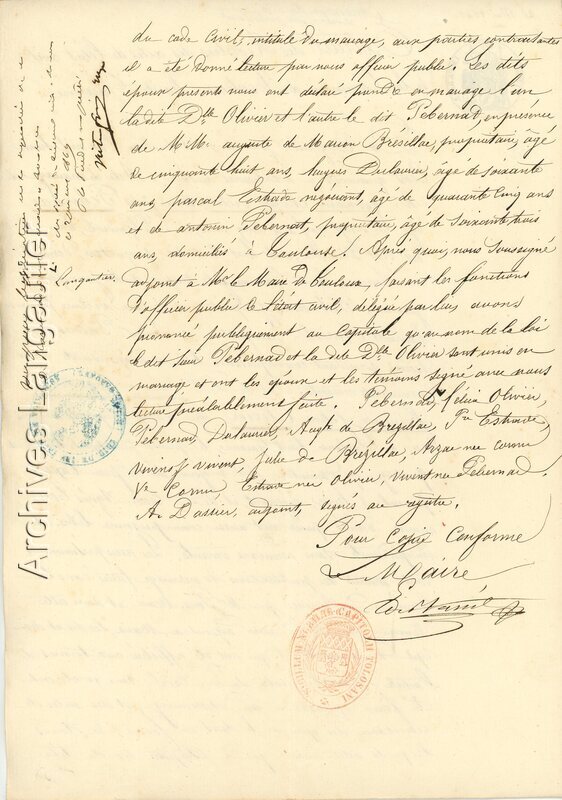 du code civil, intitulé du mariage, aux parties contractantes
il a été donné lecture par nous officier public. Les dits
époux présents nous ont déclaré prendre en mariage l'un
la dite Dlle Olivier et l'autre le dit Pébernad, en présence
de M.M. auguste de Marion Brésillac, propriétaire, âgé
de cinquante huit ans, Dulaurier, âgé de soixante
ans, pascal Estrade négociant, âgé de quarante cinq ans
et de antonin Pébernat, propriétaire, âgé de soixante trois
ans, domiciliés à Toulouse. Après quoi, nous soussigné
adjoint à Mr le Maire de Toulouse, faisant les fonctions
d'officier public de l'état civil, délégué par lui avons
prononcé publiquement au Capitole qu'au nom de la loi
le dit Sieur Pébernad et la dite Dlle Olivier sont unis en
mariage et ont les époux et les témoins signé avec nous
lecture préalablement faite. Pébernad, Olivier,
Pébernad, Dulaurier, Augte de Brézillac, Estrade
vivent, Julie de Brézillac, née
Ve Cornu, Estrade née Olivier, née Pébernad.
A. Dassier, adjoint, signés au registre.
Pour Copie Conforme
Le Maire
SIGILLUM NOBILIS CAPITOLII TOLOSANI
Archives Languedoc